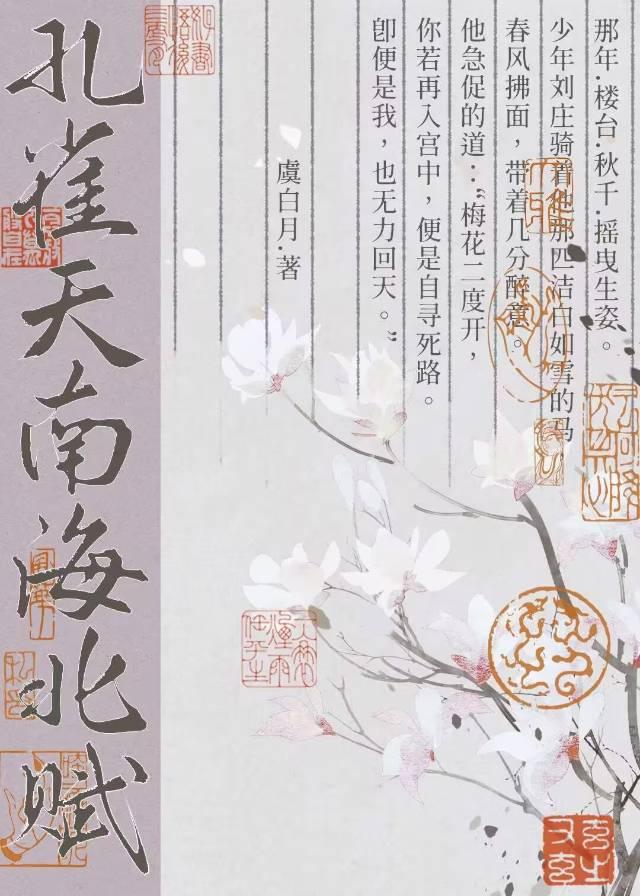 孔雀天南海北赋
那年.楼台.秋千.摇曳生姿。
少年刘庄骑着他那匹洁白如雪的马
春风拂面，带着几分醉意。
他急促的道：“梅花二度开，
你若再入宫中，便是自寻死路。
即便是我，也无力回天。”
虞白月.著
玄之
又玄